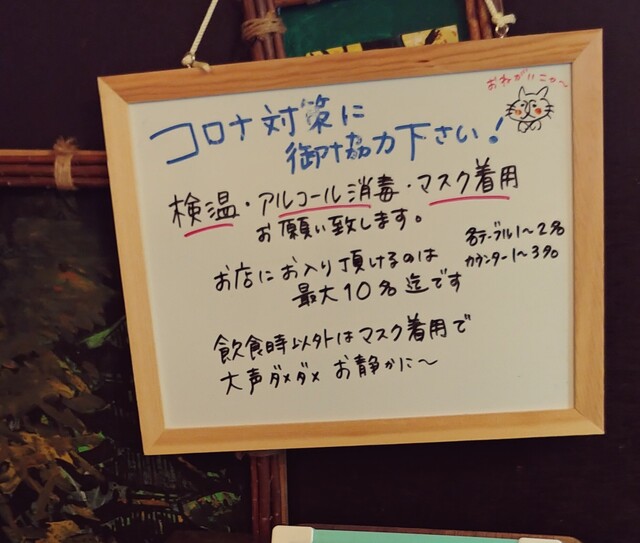 おねがいにゃ〜
コロナ対策に
御協力下さい！
検温・アルコール消毒・マスク着用
お願い致します。
お店にお入り頂けるのは
最大10名迄です
各テーブル1〜2名
カウンター1〜3名
飲食時以外はマスク着用で
大声ダメダメ お静かに〜